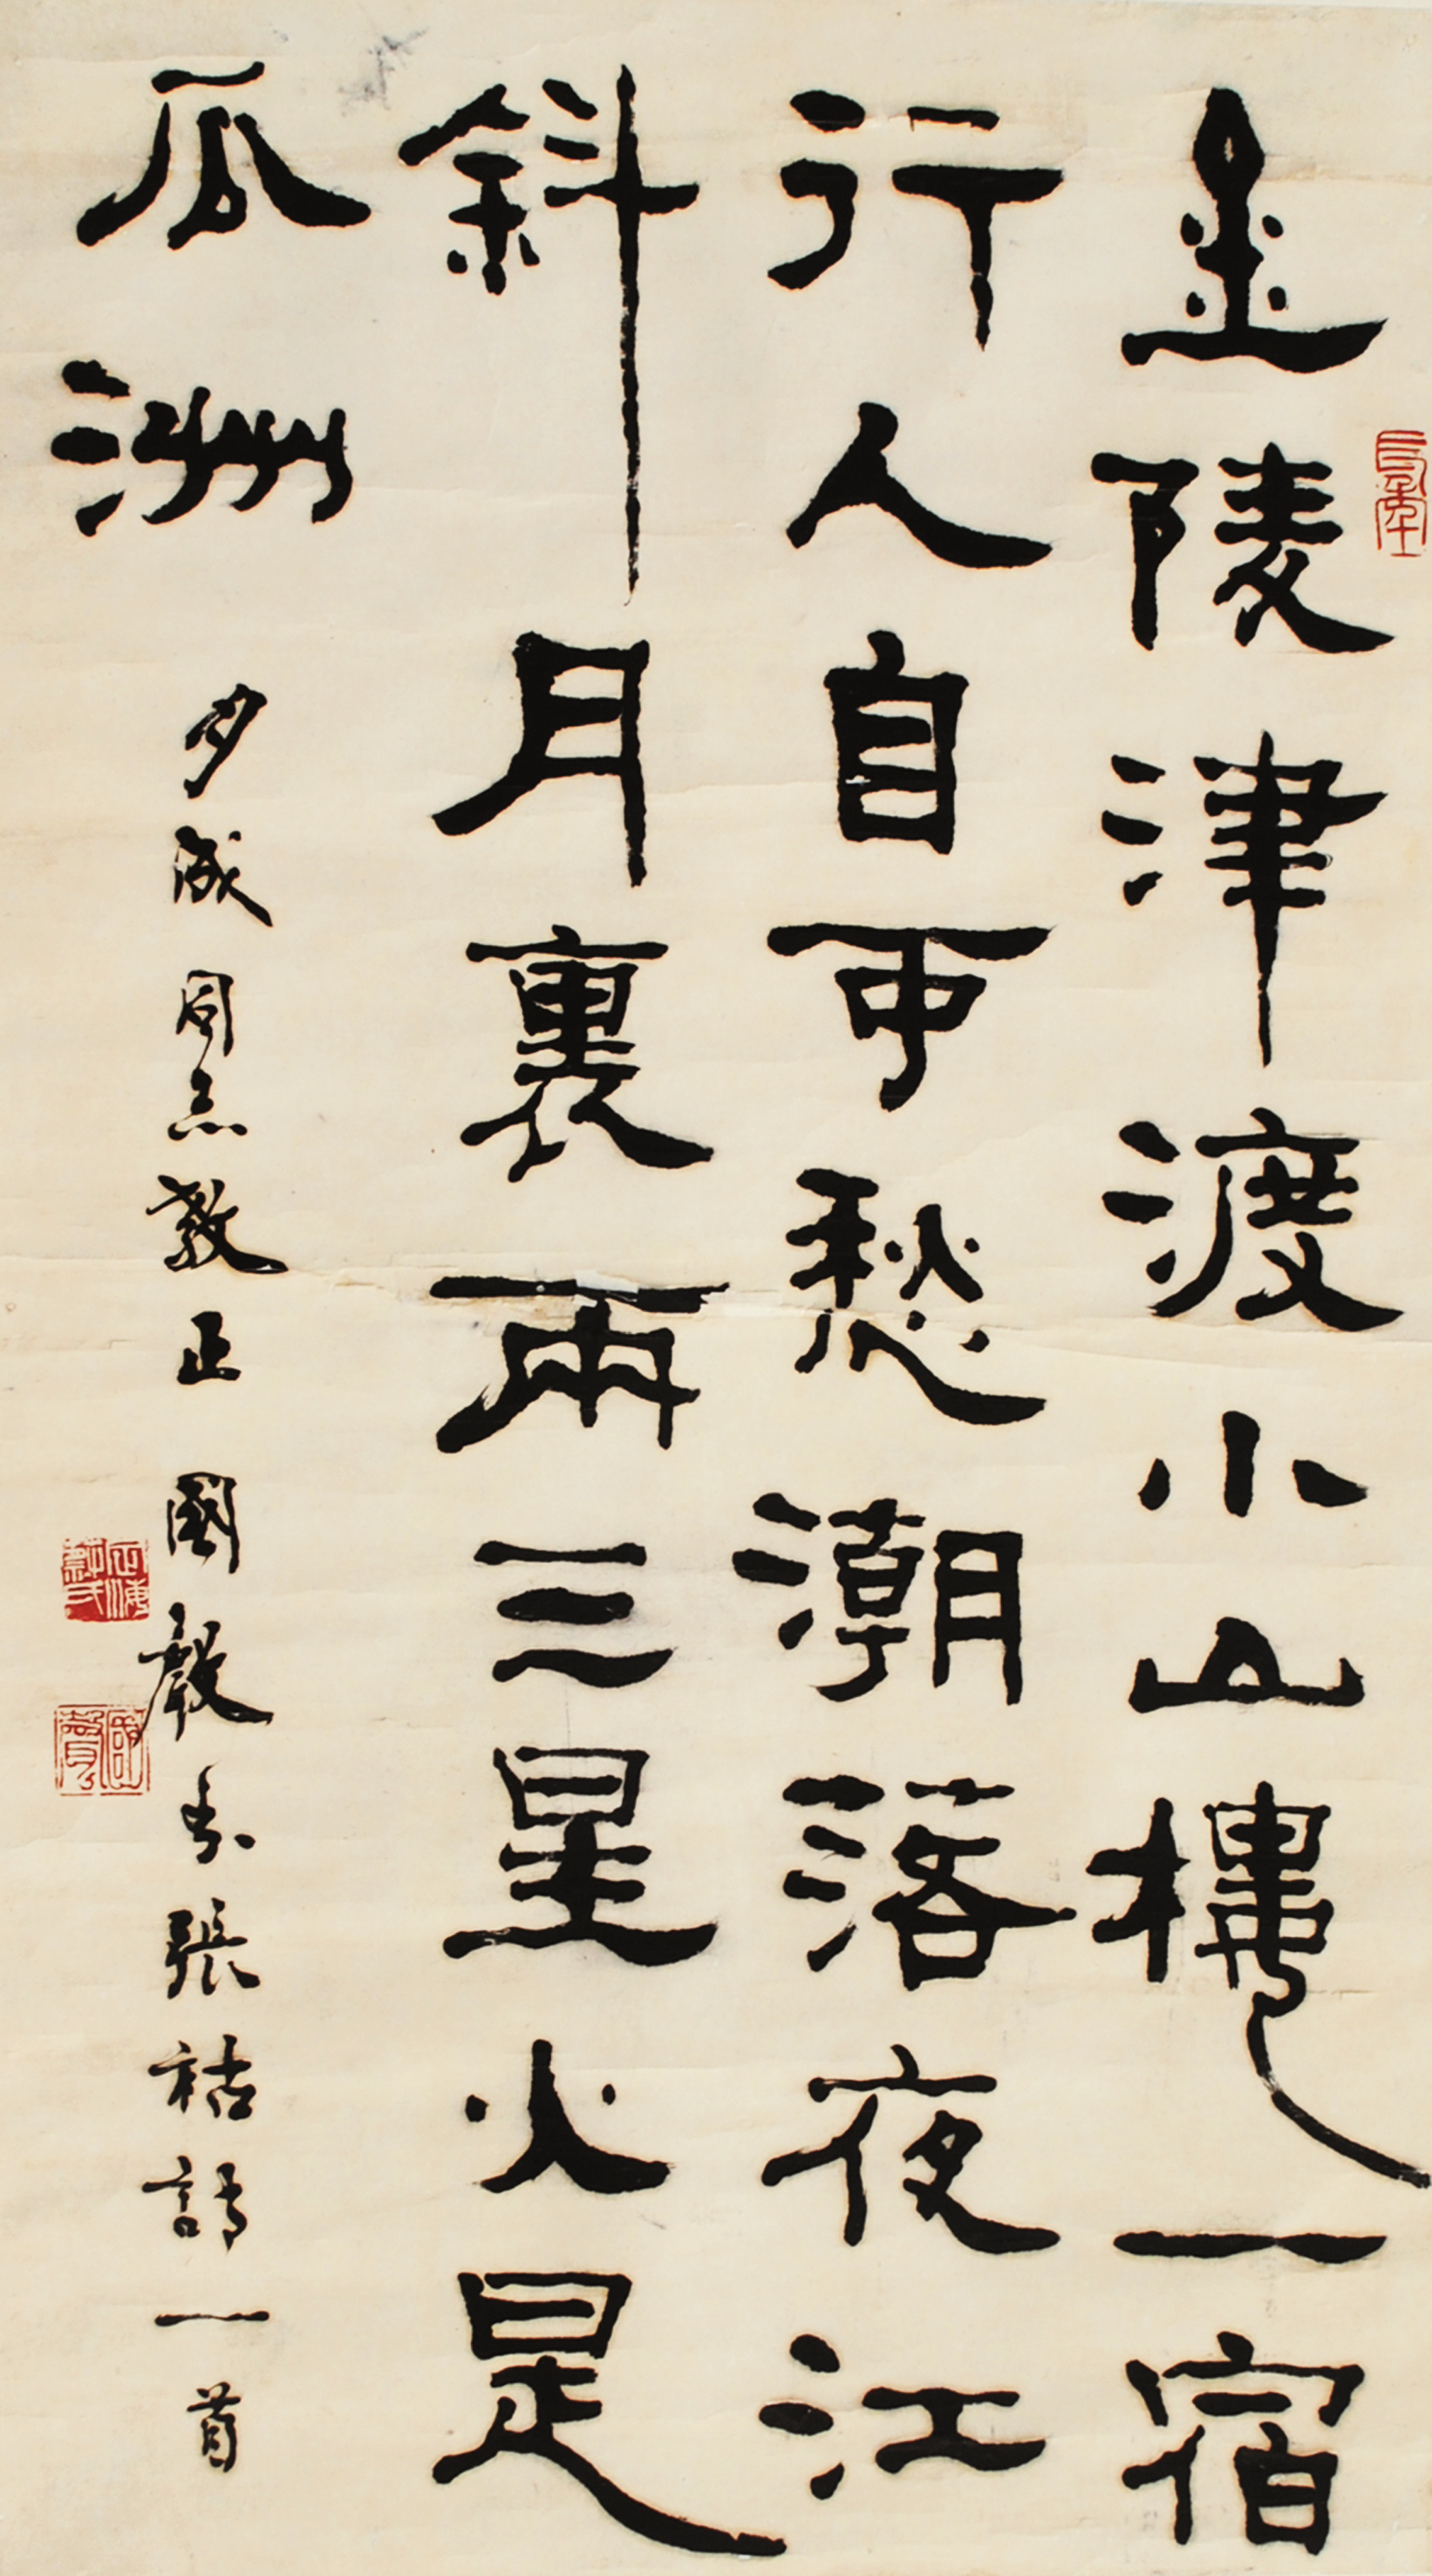 金陵津渡小山樓一宿
行人自可愁潮落夜江
斜月裏兩三星火是
瓜洲
夕誠同志教正 國聲書張祜詩一首
國聲